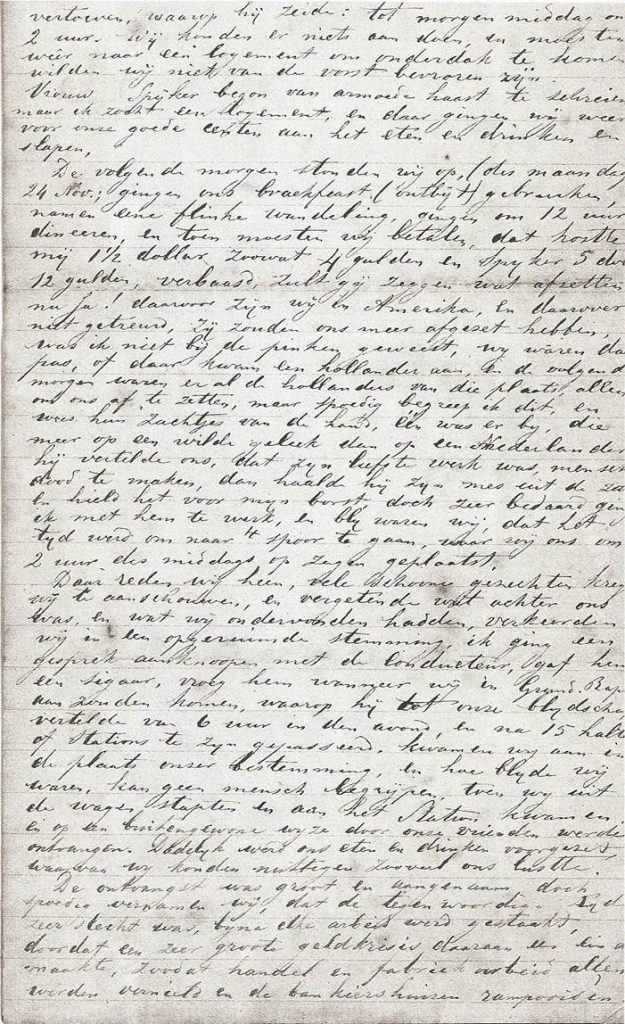 vertoeven, waarop hij zeide: tot morgen middag om
2 uur. Wij konden er niets aan doen, en moesten
wéér naar een logement om onderdak te kome
wilden wij niet van de vorst bevroren zijn.
Vrouw Spijker begon van armoede haast te schreien
maar ik zocht een logement, en daar gingen wij wee
voor onze goede centen aan het eten en drinken en
slapen,
De volgende morgen stonden wij op, (des maandag
24 Nov.; gingen ons breekfeast (ontbijt) gebruiken,
namen eene flinke wandeling, gingen om 12 uur
dineeren, en toen moesten wij betalen, dat kostte
mij 1½ dollar, zoowat 4 gulden en Spijker 5 do
12 gulden, verbaasd, zult gij zeggen wat afzetten
nu ja! daarvoor zijn wij in Amerika, en daarover
niet getreurd, zij zouden ons meer afgezet hebben,
was ik niet bij de pinken geweest, wij waren da
pas, of daar kwam een hollander aan, en de volgend
morgen waren er al de hollanders van die plaats, allen
om ons af te zetten, maar spoedig begreep ik dit, en
wees hun zachtjes van de hand, één was er bij, die
meer op een wilde geleek dan op een Nederlander
hij vertelde ons, dat zijn liefste werk was, mensch
dood te maken, dan haald hij zijn mes uit de za
en hield het voor mijn borst, doch zeer bedaard gin
ik met hem te werk, en blij waren wij, dat het
tijd werd om naar 't spoor te gaan, waar wij ons om
2 uur des middags op zagen geplaatst,
Daar reden wij heen, vele schoone gezechten kreg
wij te aanschouwen, en vergetende wat achter ons
was, en wat wij ondervonden hadden, verkeerden
wij in een opgeruimde stemming, ik ging een
gesprek aanknoopen met de Conducteur, gaf hem
een sigaar, vroeg hem wanneer wij in Grand. Rap
aan zouden komen, waarop hij tot onze blydscha
vertelde van 6 uur in den avond, en na 15 halt
of Stations te zijn gepasseerd, kwamen wij aan in
de plaats onzer bestemming, en hoe blijde wij
waren, kan geen mensch begrijpen, toen wij uit
de wagen stapten en aan het Station kwamen
en op een buitengewone wijze door onze vrienden werde
ontvangen. Dadelijk werd ons eten en drinken voorgezet,
waarvan wij konden nuttigen zooveel ons lustte.
De ontvangst was groot en aangenaam doch
spoedig vernamen wij, dat de tegenwoordige tijd
zeer slecht was, bijna elke arbeid werd gestaakt,
doordat een zeer groote geldkrisis daaraan een eind
maakte, zoodat handel en fabriek arbeid allen
werden vernield en de bankiershuizen